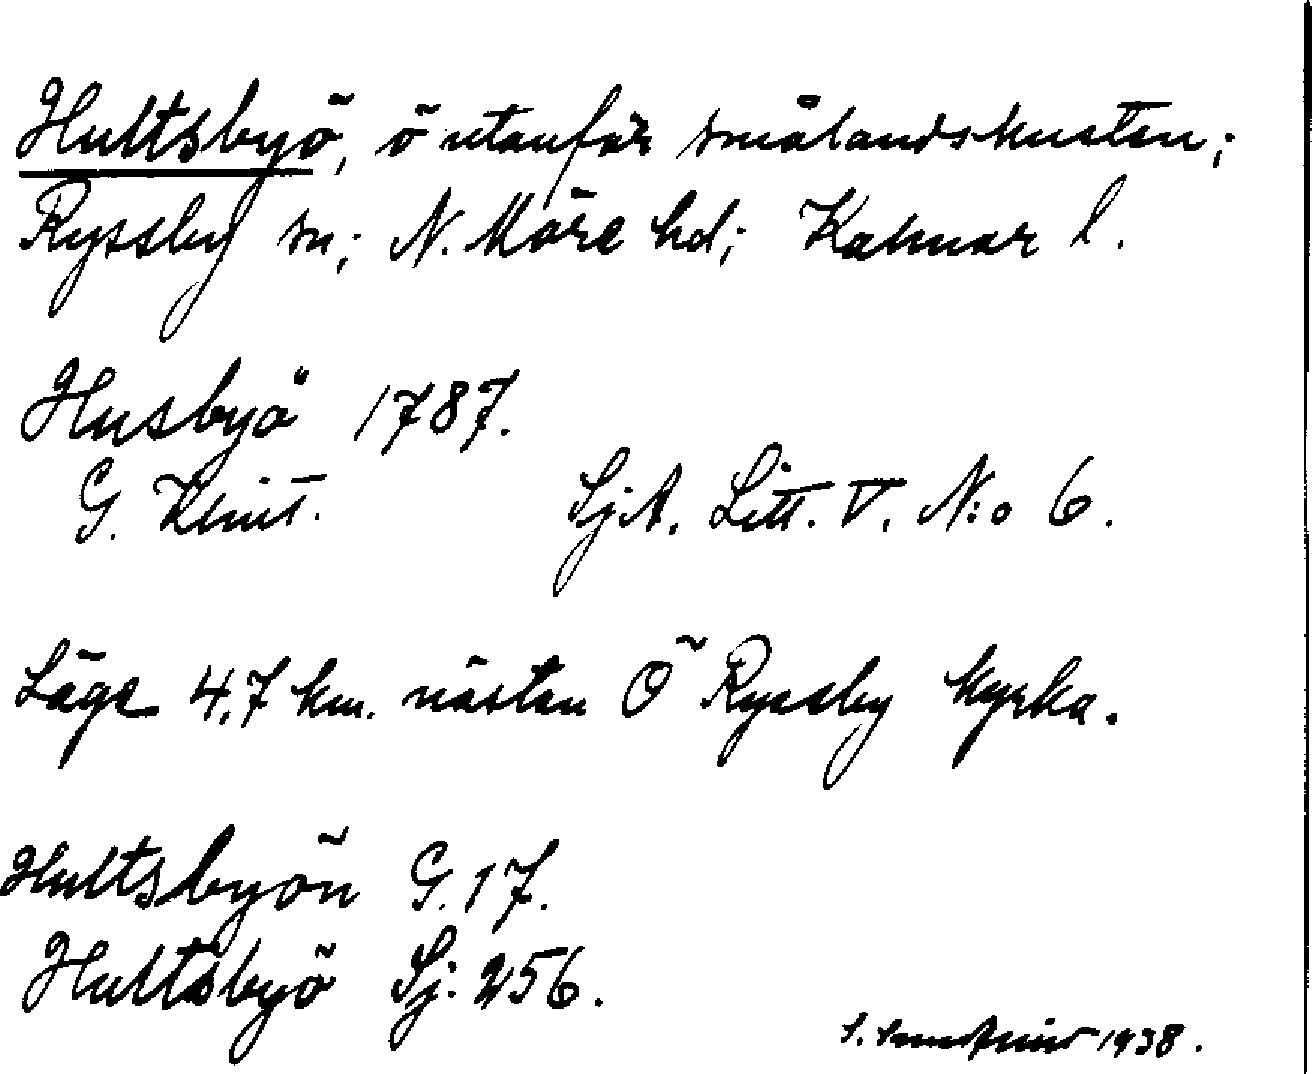 Hultsbyö, ö utanför smålandskusten;
Ryssby sn; N. Möre hd; Kalmar l.
Husbyö 1787.
G. Klint. SjA. Litt. V. N:o 6.
Läge 4,7 km. nästan Ö Ryssby kyrka.
Hultsbyön G. 17.
Hultsbyö Sj. 256.
S. 1938.